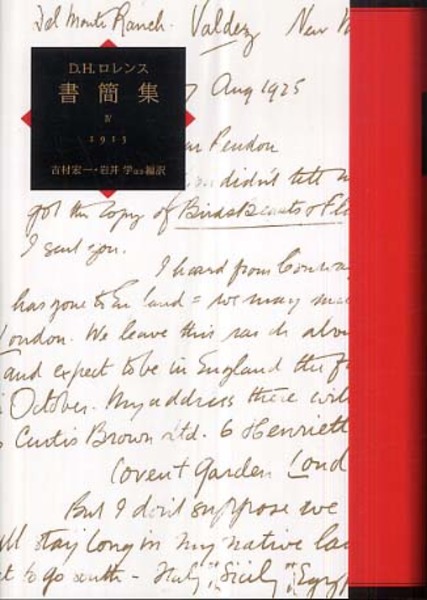 Del Monte Ranch. Valdez New M
D.H.ロレンス
書簡集
Ⅳ
1915
吉村宏一・岩井学ほか編訳
7 Aug 1925
ar Pendon
didn't tell m
got the copy of Birds Beasts & Fl
I sent you.
I heard from Conway
has gone to En land = we may
London. We leave this ranch abou
and expect to be in England the f
October. My address there will
Curtis Brown Ltd. 6 Henriett
Covent Garden Lond
But I don't suppose we
ll stay long in my native la
t to go south - Italy, Sicily, Egyp